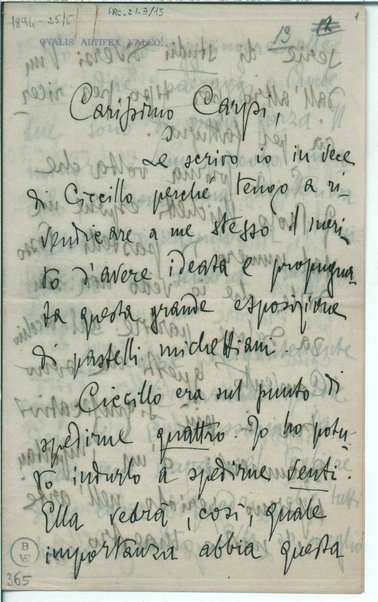 1894-25/5
ARC. 21.3/15
13
12
1
QVALIS ARTIFEX VALEO!
Carissimo Carpi,
Le scrivo io in vece
di Ciccillo perché tengo a ri-
vendicare a me stesso il meri-
to d'avere ideata e propugna-
ta questa grande esposizione
di pastelli michettiani.
Ciccillo era sul punto di
spedirne quattro. Io ho potu-
to indurlo a spedirne venti.
Ella vedrà, così, quale
importanza abbia questa
B
VE
365